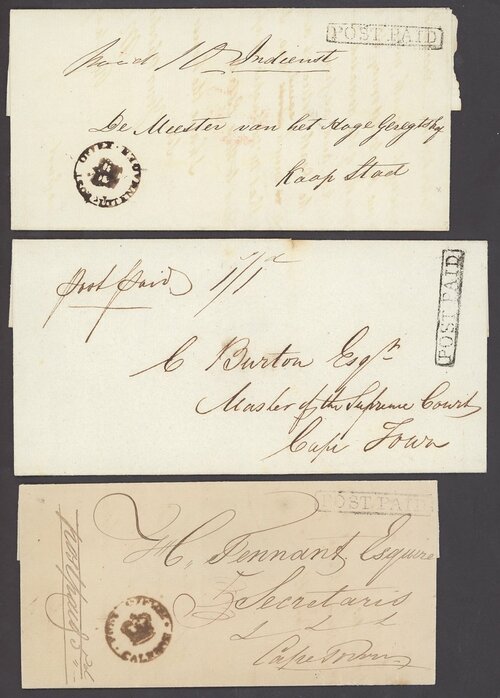 POST PAID
paid 10 Indienst
De Meester van het Hoge Geregtshof
Kaap Stad
POST OFFICE UITENHAGE
post paid 1/1d
POST PAID
C Burton Esqr
Master of the Supreme Court
Cape Town
POST PAID
H. Tennant Esquire
Secretaris
Cape Town
post paid
POST OFFICE CALEDON